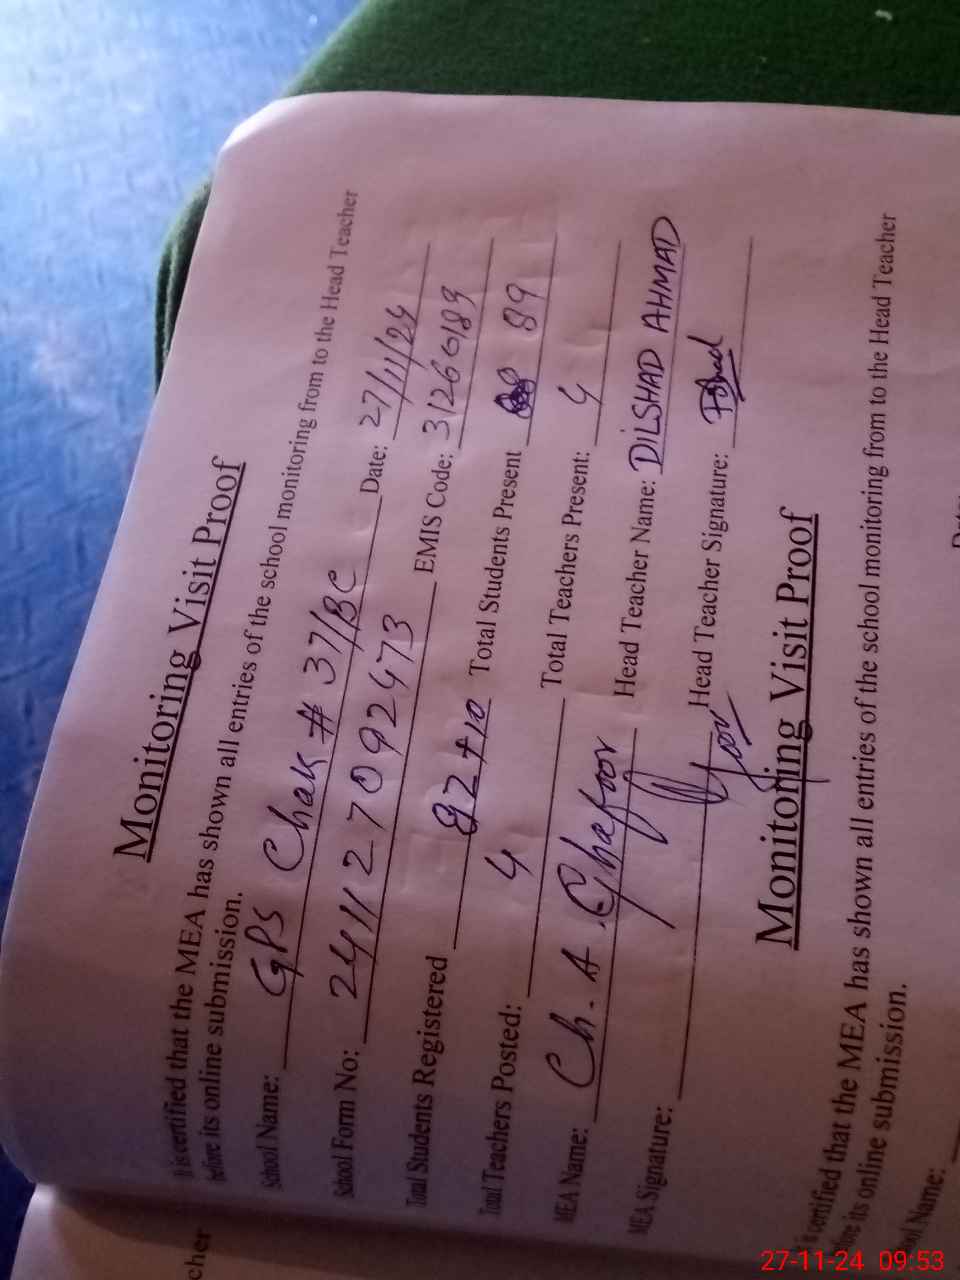 Monitoring Visit Proof
It is certified that the MEA has shown all entries of the school monitoring from to the Head Teacher
before its online submission.
School Name: GPS Chak # 37/BC Date: 27/11/24
School Form No: 241127092473 EMIS Code: 31266183
Total Students Registered 92+10 Total Students Present 89
Total Teachers Posted: 4 Total Teachers Present: 4
MEA Name: Ch. A. Ghafoor Head Teacher Name: DILSHAD AHMAD
MEA Signature: Head Teacher Signature:
Monitoring Visit Proof
It is certified that the MEA has shown all entries of the school monitoring from to the Head Teacher
before its online submission.
School Name:
cher
27-11-24 09:53